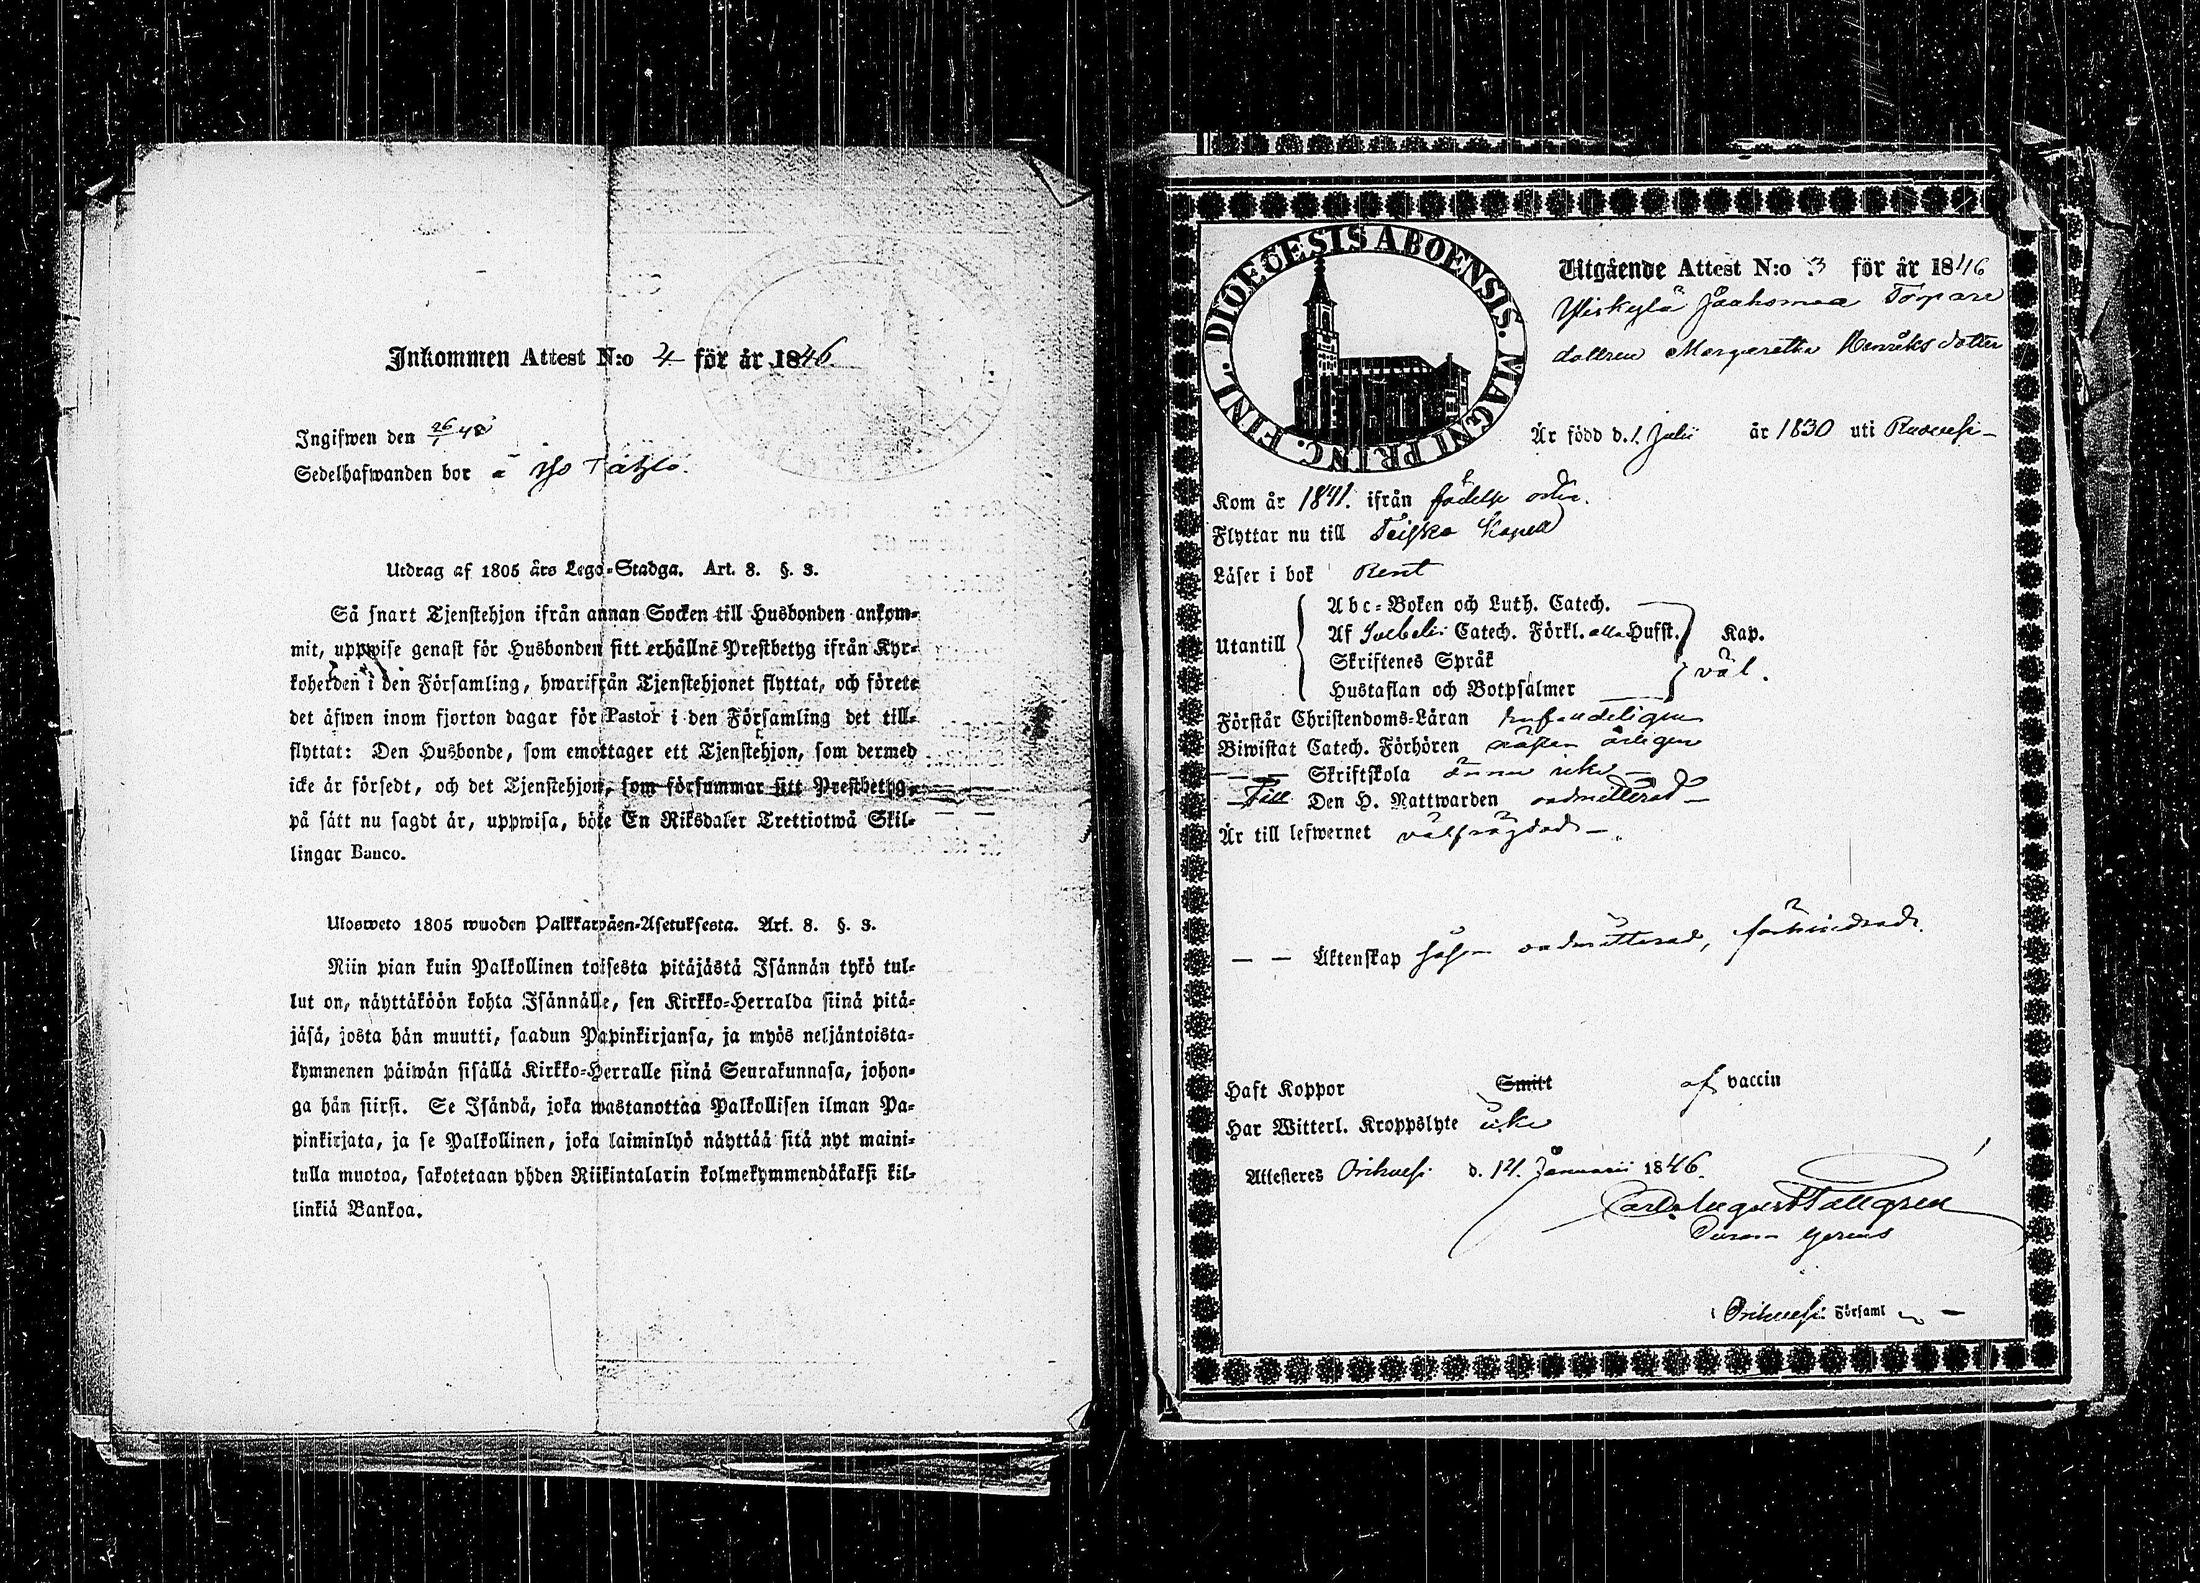 Inkommen Attest N:o 4 för år 1846.
Ingifwen den 26/1 46
Sedelhafwanden bor å Iso
Utdrag af 1805 års Lego-Stadga. Art. 8. §. 3.
Så snart Tjenstehjon ifrån annan Socken till Husbonden ankom-
mit, uppwise genast för Husbonden sitt erhållne Prestbetyg ifrån Kyr-
koherden i den Församling, hwarifrån Tjenstehjonet flyttat, och förete
det äfwen inom fjorton dagar för Pastor i den Församling det till-
flyttat: Den Husbonde, som emottager ett Tjenstehjon, som dermed
icke är försedt, och det Tjenstehjon, som försummar sitt Prestbetyg,
på sätt nu sagdt är, uppwisa, böte En Riksdaler Trettiotwå Skil-
lingar Banco.
Ulosweto 1805 wuoden Palkkawäen-Asetuksesta. Art. 8. §. 3.
Niin pian kuin Palkollinen toisesta pitäjästä Isännän tykö tul-
lut on, näyttäköön kohta Isännälle, sen Kirkko-Herralda siinä pitä-
jäsä, josta hän muutti, saadun Papinkirjansa, ja myös neljäntoista-
kymmenen päiwän sisällä Kirkko-Herralle siinä Seurakunnasa, johon-
ga hän siirsi. Se Isändä, joka wastanottaa Palkollisen ilman Pa-
pinkirjata, ja se Palkollinen, joka laiminlyö näyttää sitä nyt maini-
tulla muotoa, sakotetaan yhden Riikintalarin kolmekymmendäkaksi kil-
linkiä Bankoa.
DIOECESIS ABOENSIS. MAGNI PRINC. FINL.
Utgående Attest N:o 3 för år 1846
Yliskylä Jaakomaa Torpare
dottren Margaretha Henriksdotter
Är född d. 1 Julii år 1830 uti Ruovesi
Kom år 1841. ifrån födelse orten.
Flyttar nu till Teisko Kapell
Läser i bok Rent
Abc-Boken och Luth. Catech.
Utantill Af Svebelii Catech. Förkl. alla Hufst. Kap.
Skriftenes Språk väl.
Hustaflan och Botpsalmer
Förstår Christendoms-Läran
Biwistat Catech. Förhören nästan årligen
— — Skriftskola ännu icke —
Till Den H. Nattwarden oadmitterad —
Är till lefwernet välfrägdad —
— — Äktenskap såsom oadmitterad, förhindrad.
Haft Koppor Smitt af vaccin
Har Witterl. Kroppslyte icke
Attesteres Orihvesi d. 14 Januarii 1846.
Carl August Tallgren
i Orihvesi Församl